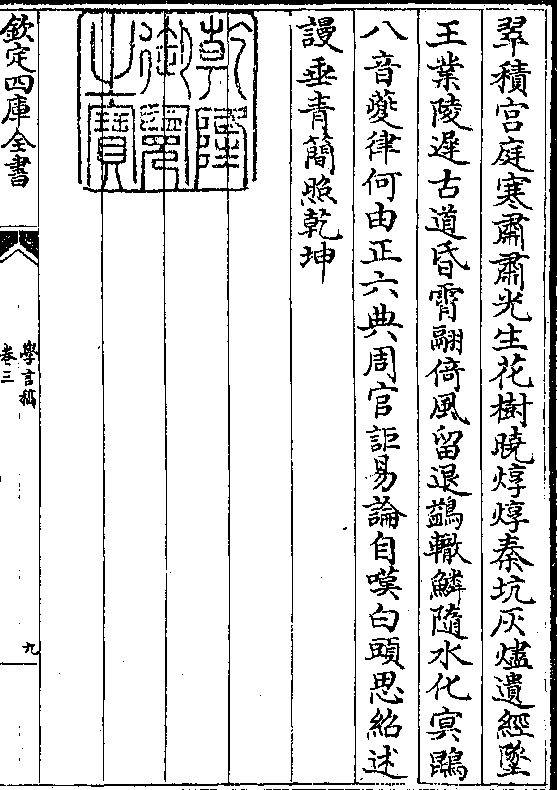 翠積宫庭寒肅肅光生花樹曉焞焞秦坑灰燼遺經墜
王業陵遲古道昏霄翮倚風留退鷁轍鱗隨水化冥鵾
八音夔律何由正六典周官詎易論自嘆白頭思紹述
謾垂青簡照乾坤
乾隆
御覽
之寶
欽定四庫全書
學言稿
卷三
九